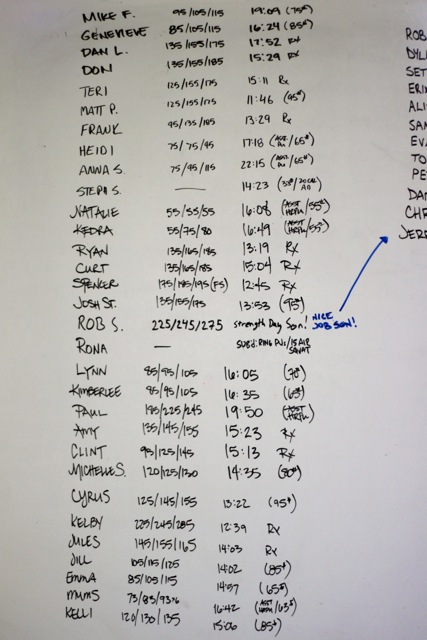 MIKE F. 95/105/115 19:09 (75#)
GENEVIEVE 85/105/115 16:24 (85#)
DAN L. 135/155/175 17:52 Rx
DON 135/155/185 15:29 Rx
TERI 125/155/175 15:11 Rx
MATT P. 125/155/175 11:46 (95#)
FRANK 95/135/185 13:29 Rx
HEIDI 75/75/95 17:18 /65#)
ANNA S. 75/95/115 22:15 /65#)
STEPH S. — 14:23
NATALIE 55/55/55 16:08 (ASST /55#)
KEDRA 55/75/80 16:49 (ASST /55#)
RYAN 135/165/185 13:19 Rx
CURT 135/165/185 15:04 Rx
SPENCER 175/185/195 (FS) 12:45 Rx
JOSH ST. 135/155/175 13:53 (95#)
ROB S. 225/245/275 Strength Day Son! NICE JOB SON!
RONA — SUB'D: RING PU's/15 AIR SQUAT
LYNN 85/95/105 16:05 (70#)
KIMBERLEE 85/95/105 16:35 (65#)
PAUL 195/225/245 19:50 (ASST
AMY 135/145/155 15:23 Rx
CLINT 95/125/145 15:13 Rx
MICHELLE S. 120/125/130 14:35 (80#)
CYRUS 125/145/155 13:22 (95#)
KELBY 225/245/285 12:39 Rx
JULES 145/155/165 14:03 Rx
JILL 105/115/125 14:02 (85#)
EMMA 85/105/115 14:57 (65#)
MUMS 16:42 (ASST /65#)
KELLI 120/130/135 15:06 (85#)
ROB
DYL
SET
ERI
ALI
SAM
EV
TO
PE
DAN
CHR
JERE